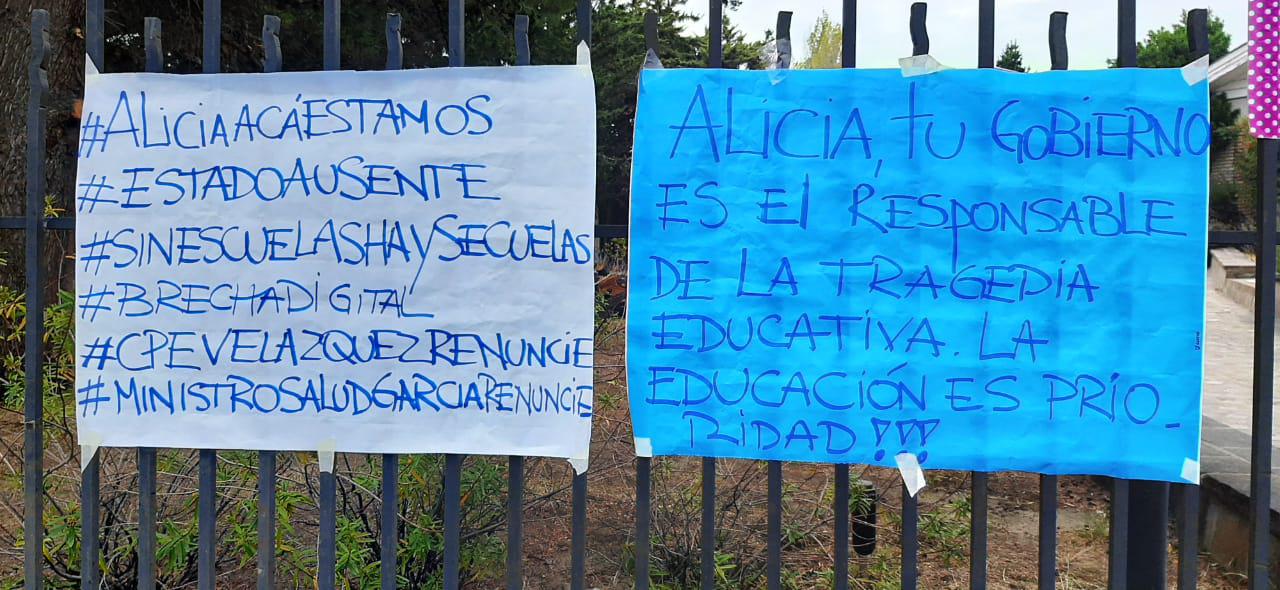 #ALiCiAACÁESTAMOS
#ESTADOAUSENTE
#SINESCUELASHAYSECUELAS
#BRECHADIGITAL
#CPEVELAZQUEZRENUNCIE
#MINISTROSALUDGARCIARENUNCIE
ALICIA, tU GOBIERNO
ES El RESPONSABLE
DE LA TRAGEDIA
EDUCATIVA. LA
EDUCACIÓN ES PRIO_
RIDAD!!!